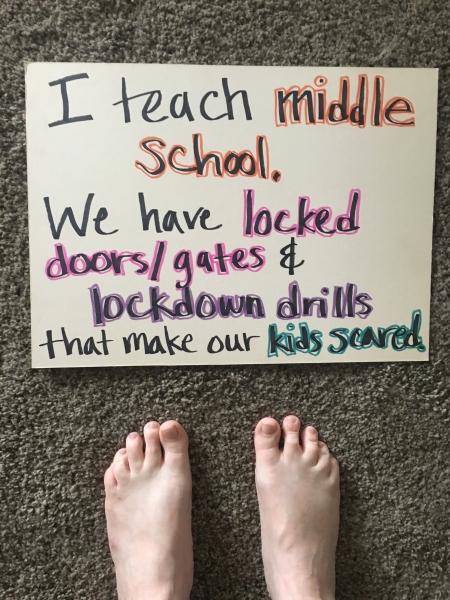 I teach middle
school.
We have locked
doors/gates &
lockdown drills
that make our kids scared.